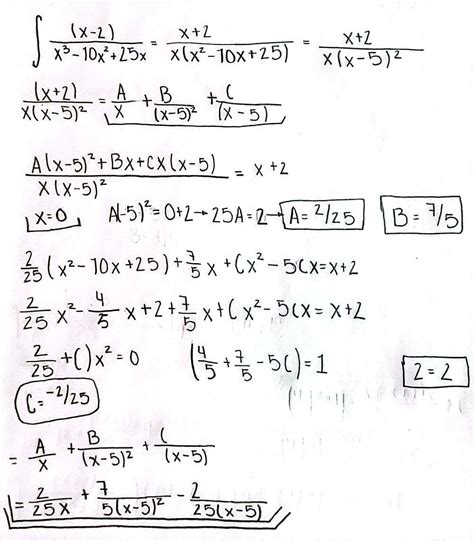 ∫ (x-2)/(x³-10x²+25x) = (x+2)/(x(x²-10x+25)) = (x+2)/(x(x-5)²)
(x+2)/(x(x-5)²) = A/x + B/(x-5)² + C/(x-5)
(A(x-5)²+Bx+Cx(x-5))/(x(x-5)²) = x+2
x=0 A(-5)²=0+2→25A=2→ A=2/25 B=7/5
2/25(x²-10x+25)+7/5x+Cx²-5Cx=x+2
2/25x²-4/5x+2+7/5x+Cx²-5Cx=x+2
2/25+C)x²=0 (4/5+7/5-5C)=1 2=2
C=-2/25
= A/x + B/(x-5)² + C/(x-5)
= 2/25x + 7/5(x-5)² - 2/25(x-5)